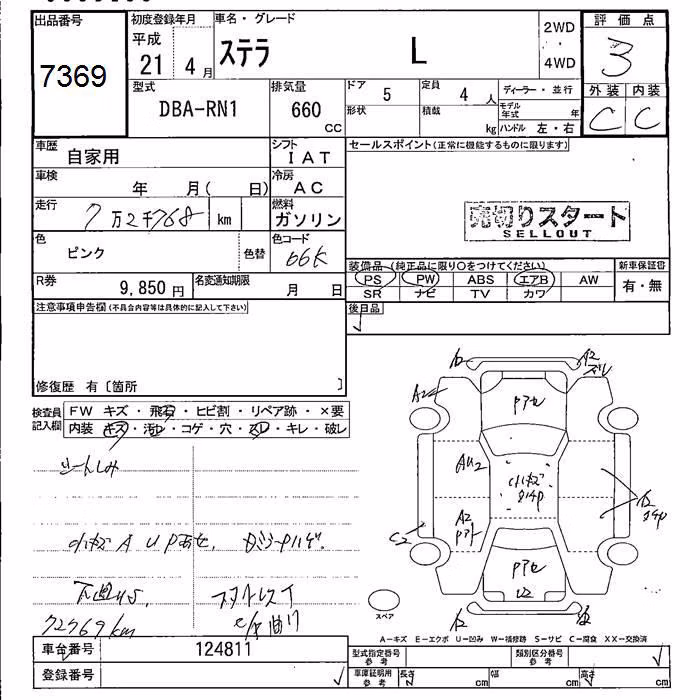 出品番号
7369
初度登録年月
平成
21 4 月
車名・グレード
ステラ L
2WD
・
4WD
評価点
3
外装 内装
C C
型式
DBA-RN1
排気量
660
cc
ドア 5
形状
定員 4 人
積載 kg
ディーラー・並行
モデル年式 年
ハンドル 左・右
車歴
自家用
シフト
IAT
車検
年 月( 日)
冷房
AC
走行
7万2千768 km
燃料
ガソリン
色
ピンク
色替
色コード
66K
R券
9,850 円
名変通知期限
月 日
セールスポイント(正常に機能するものに限ります)
売切りスタート
SELLOUT
装備品 (純正品に限り○をつけてください)
PS PW ABS エアB AW
SR ナビ TV カワ
新車保証書
有・無
後日品
注意事項申告欄(不具合内容等は具体的に記入して下さい)
修復歴 有〔箇所 〕
検査員記入欄
FW キズ・飛石・ヒビ割・リペア跡・×要
内装 キズ・汚レ・コゲ・穴・スレ・キレ・破レ
シートしみ
小キズ A U P
72769km
A2
A2
Pアセ
AU2
A2
C2
Pアセ
U2
スペア
A−キズ E−エクボ U−凹み W−補修跡 S−サビ C−腐食 XX−交換済
車台番号
124811
登録番号
型式指定番号
参考
類別区分番号
参考
車庫証明用
参考
長さ cm
幅 cm
高さ cm